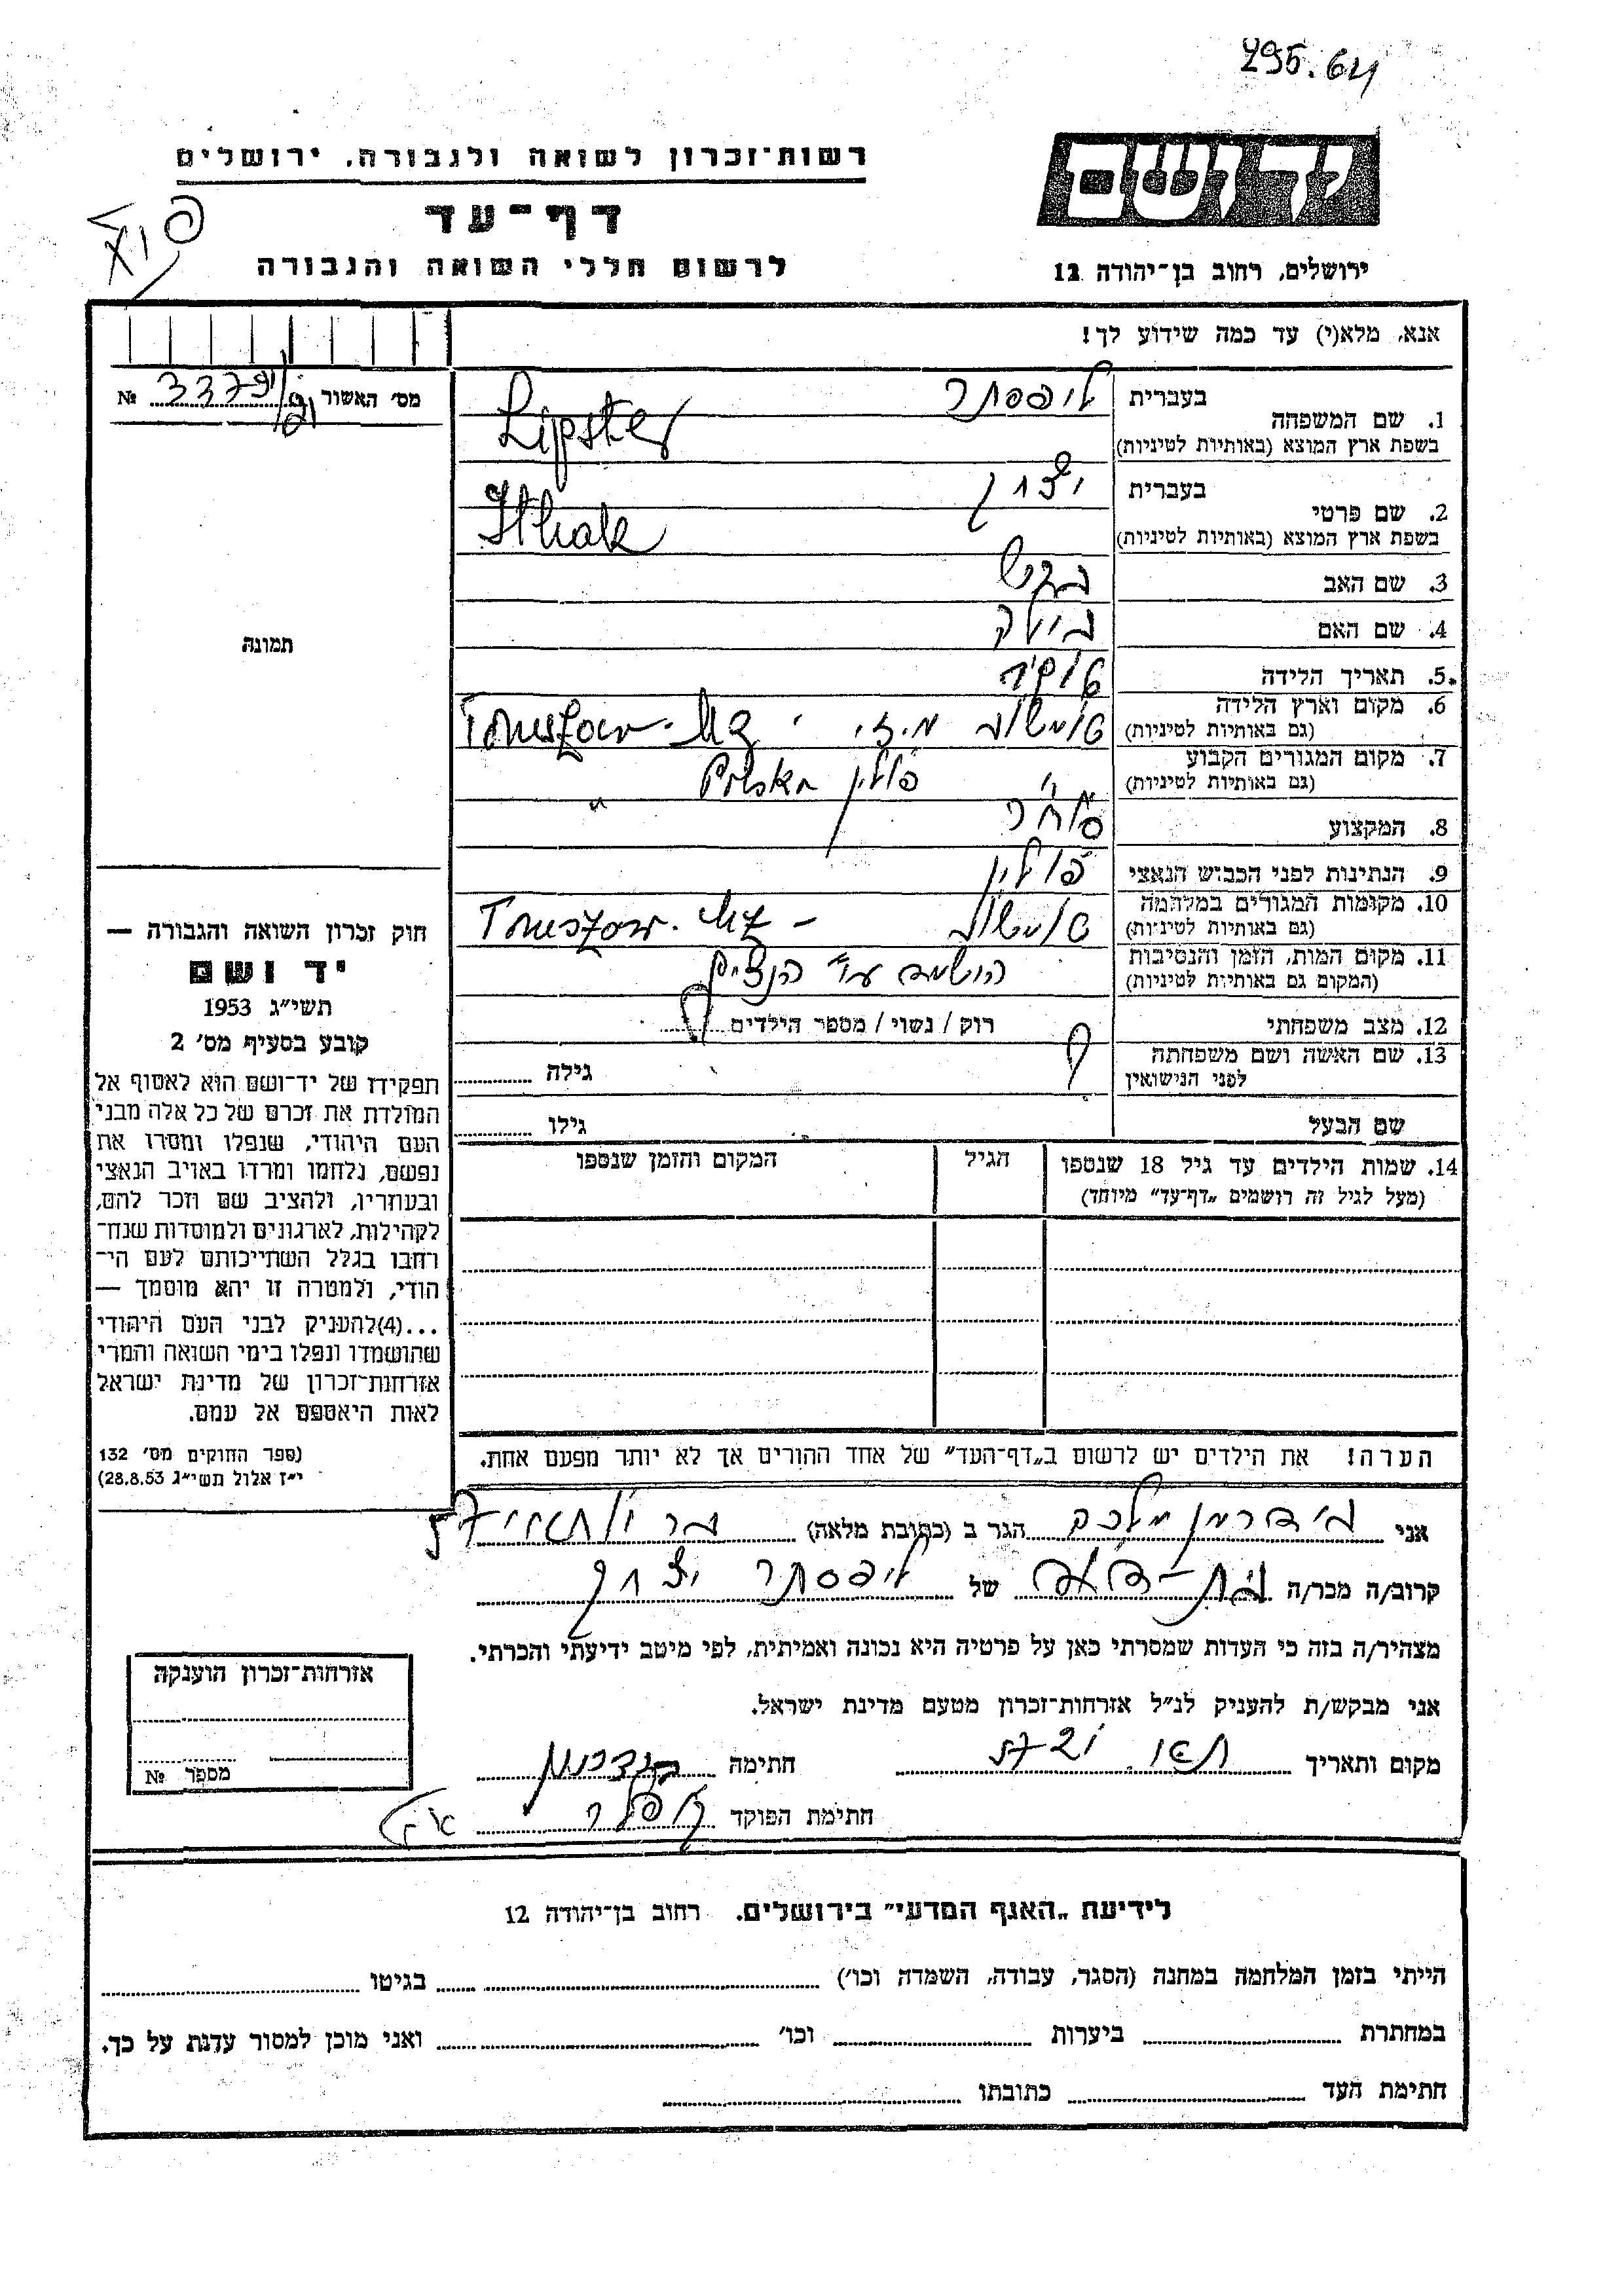 295.64
יד ושם
רשות־זכרון לשואה ולגבורה, ירושלים
דף־עד
לרשום חללי השואה והגבורה
ירושלים, רחוב בן־יהודה 12
אנא, מלא(י) עד כמה שידוע לך!
מס׳ האשור №
1. שם המשפחה בעברית ליפסתר
בשפת ארץ המוצא (באותיות לטיניות) Lipster
2. שם פרטי בעברית יצחק
בשפת ארץ המוצא (באותיות לטיניות) Ithak
3. שם האב
4. שם האם
5. תאריך הלידה
6. מקום וארץ הלידה
(גם באותיות לטיניות)
7. מקום המגורים הקבוע פולין
(גם באותיות לטיניות)
8. המקצוע סוחר
9. הנתינות לפני הכבוש הנאצי פולין
10. מקומות המגורים במלחמה
(גם באותיות לטיניות)
11. מקום המות, הזמן והנסיבות הושמד ע״י הנצים
(המקום גם באותיות לטיניות)
12. מצב משפחתי רוק / נשוי / מספר הילדים
13. שם האשה ושם משפחתה
לפני הנישואין גילה
שם הבעל גילו
14. שמות הילדים עד גיל 18 שנספו הגיל המקום והזמן שנספו
(מעל לגיל זה רושמים „דף־עד״ מיוחד)
תמונה
חוק זכרון השואה והגבורה —
יד ושם
תשי״ג 1953
קובע בסעיף מס׳ 2
תפקידו של יד־ושם הוא לאסוף אל
המולדת את זכרם של כל אלה מבני
העם היהודי, שנפלו ומסרו את
נפשם, נלחמו ומרדו באויב הנאצי
ובעוזריו, ולהציב שם וזכר להם,
לקהילות, לארגונים ולמוסדות שנח־
רחבו בגלל השתייכותם לעם הי־
הודי, ולמטרה זו יהא מוסמך —
...(4)להעניק לבני העם היהודי
שהושמדו ונפלו בימי השואה והמרי
אזרחות־זכרון של מדינת ישראל
לאות היאספם אל עמם.
(ספר החוקים מס׳ 132
י״ז אלול תשי״ג 28.8.53)
הערה! את הילדים יש לרשום ב„דף־העד״ של אחד ההורים אך לא יותר מפעם אחת.
אני הגר ב (כתובת מלאה)
קרוב/ה מכר/ה של ליפסתר יצחק
מצהיר/ה בזה כי העדות שמסרתי כאן על פרטיה היא נכונה ואמיתית, לפי מיטב ידיעתי והכרתי.
אני מבקש/ת להעניק לנ״ל אזרחות־זכרון מטעם מדינת ישראל.
מקום ותאריך חתימה
חתימת הפוקד
אזרחות־זכרון הוענקה
מספר №
לידיעת „האגף המדעי״ בירושלים. רחוב בן־יהודה 12
הייתי בזמן המלחמה במחנה (הסגר, עבודה, השמדה וכו׳) בגיטו
במחתרת ביערות וכו׳ ואני מוכן למסור עדות על כך.
חתימת העד כתובתו